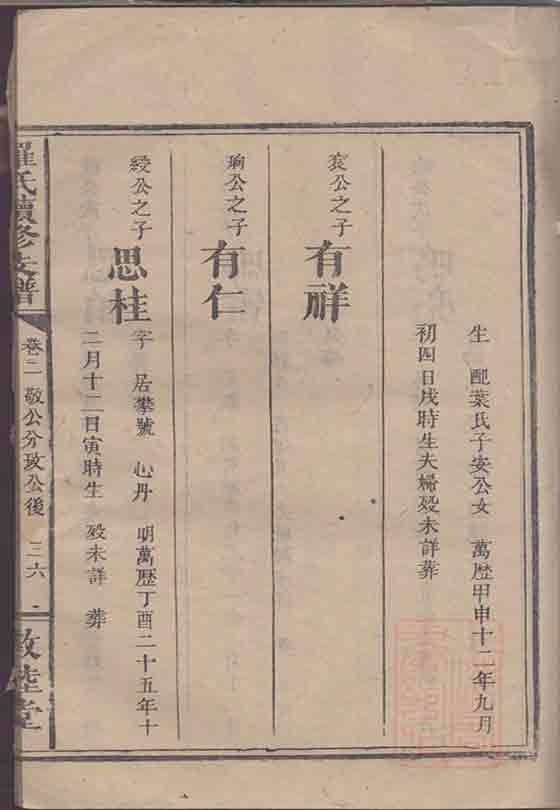 生 配葉氏子安公女 萬歷甲申十二年九月
初四日戌時生夫婦歿未詳葬
袞公之子
有祥
珣公之子
有仁
綬公之子
思桂
字 居攀號 心丹 明萬歷丁酉二十五年十
二月十二日寅時生 歿未詳 葬
羅氏續修支譜
卷二 敬公分攻公後 三六
敦睦堂